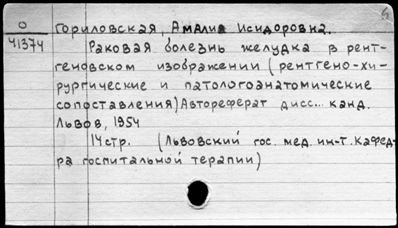 О
41374
Гориловская, Амалия Исидоровна.
Раковая болезнь желудка в рент-
геновском изображении (рентгено-хи-
рургические и патологоанатомические
сопоставления) Автореферат дисс... канд.
Львов, 1954
14 стр. (Львовский гос. мед. ин-т. Кафед-
ра госпитальной терапии)